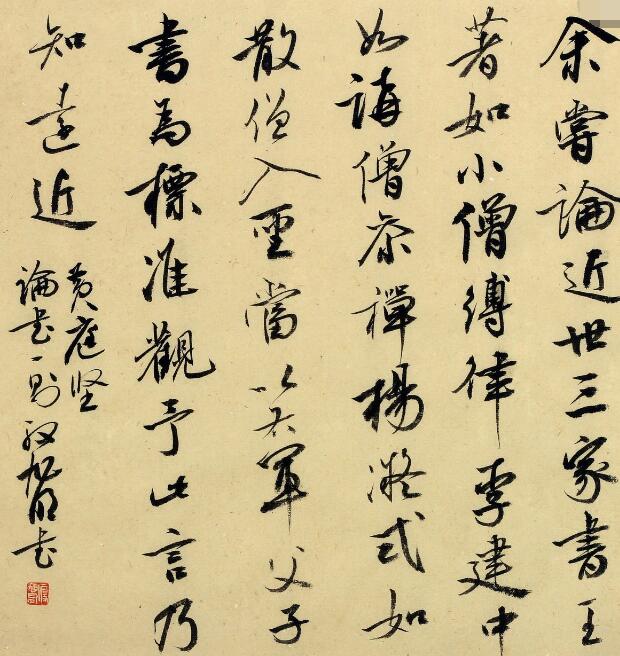 余嘗論近世三家書王
著如小僧縛律李建中
如講僧參禪楊凝式如
散僧入聖當以右軍父子
書為標准觀予此言乃
知遠近
黄庭坚
論书一则旭明书